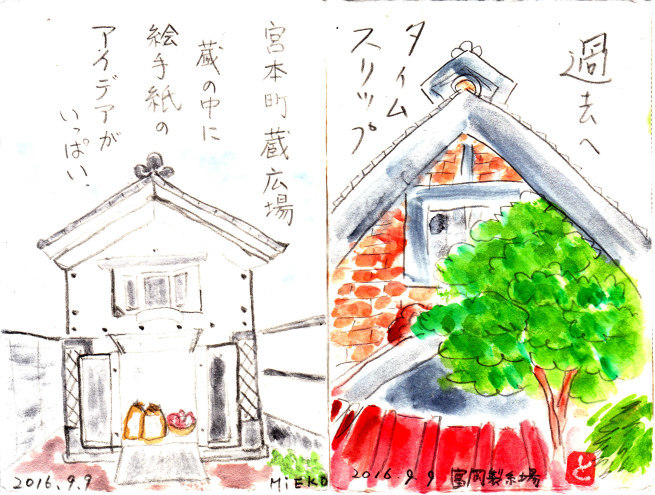 宮本町蔵広場
蔵の中に
絵手紙の
アイデアが
いっぱい.
2016.9.9
MiEKO
過去へ
タイム
スリップ
2016 9 9 富岡製糸場
と